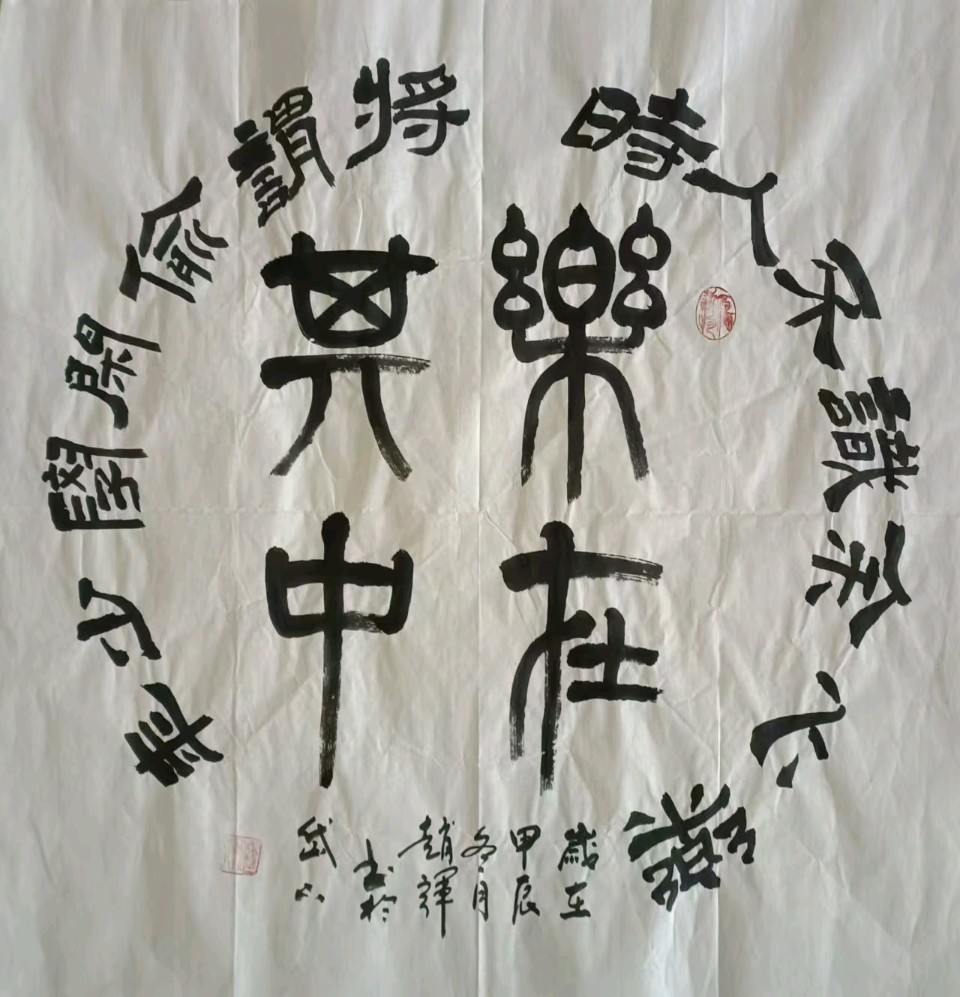 樂在
其中
時人不識余心樂
將謂偷閑學少年
歲在
甲辰
冬月
趙輝
書於
岱